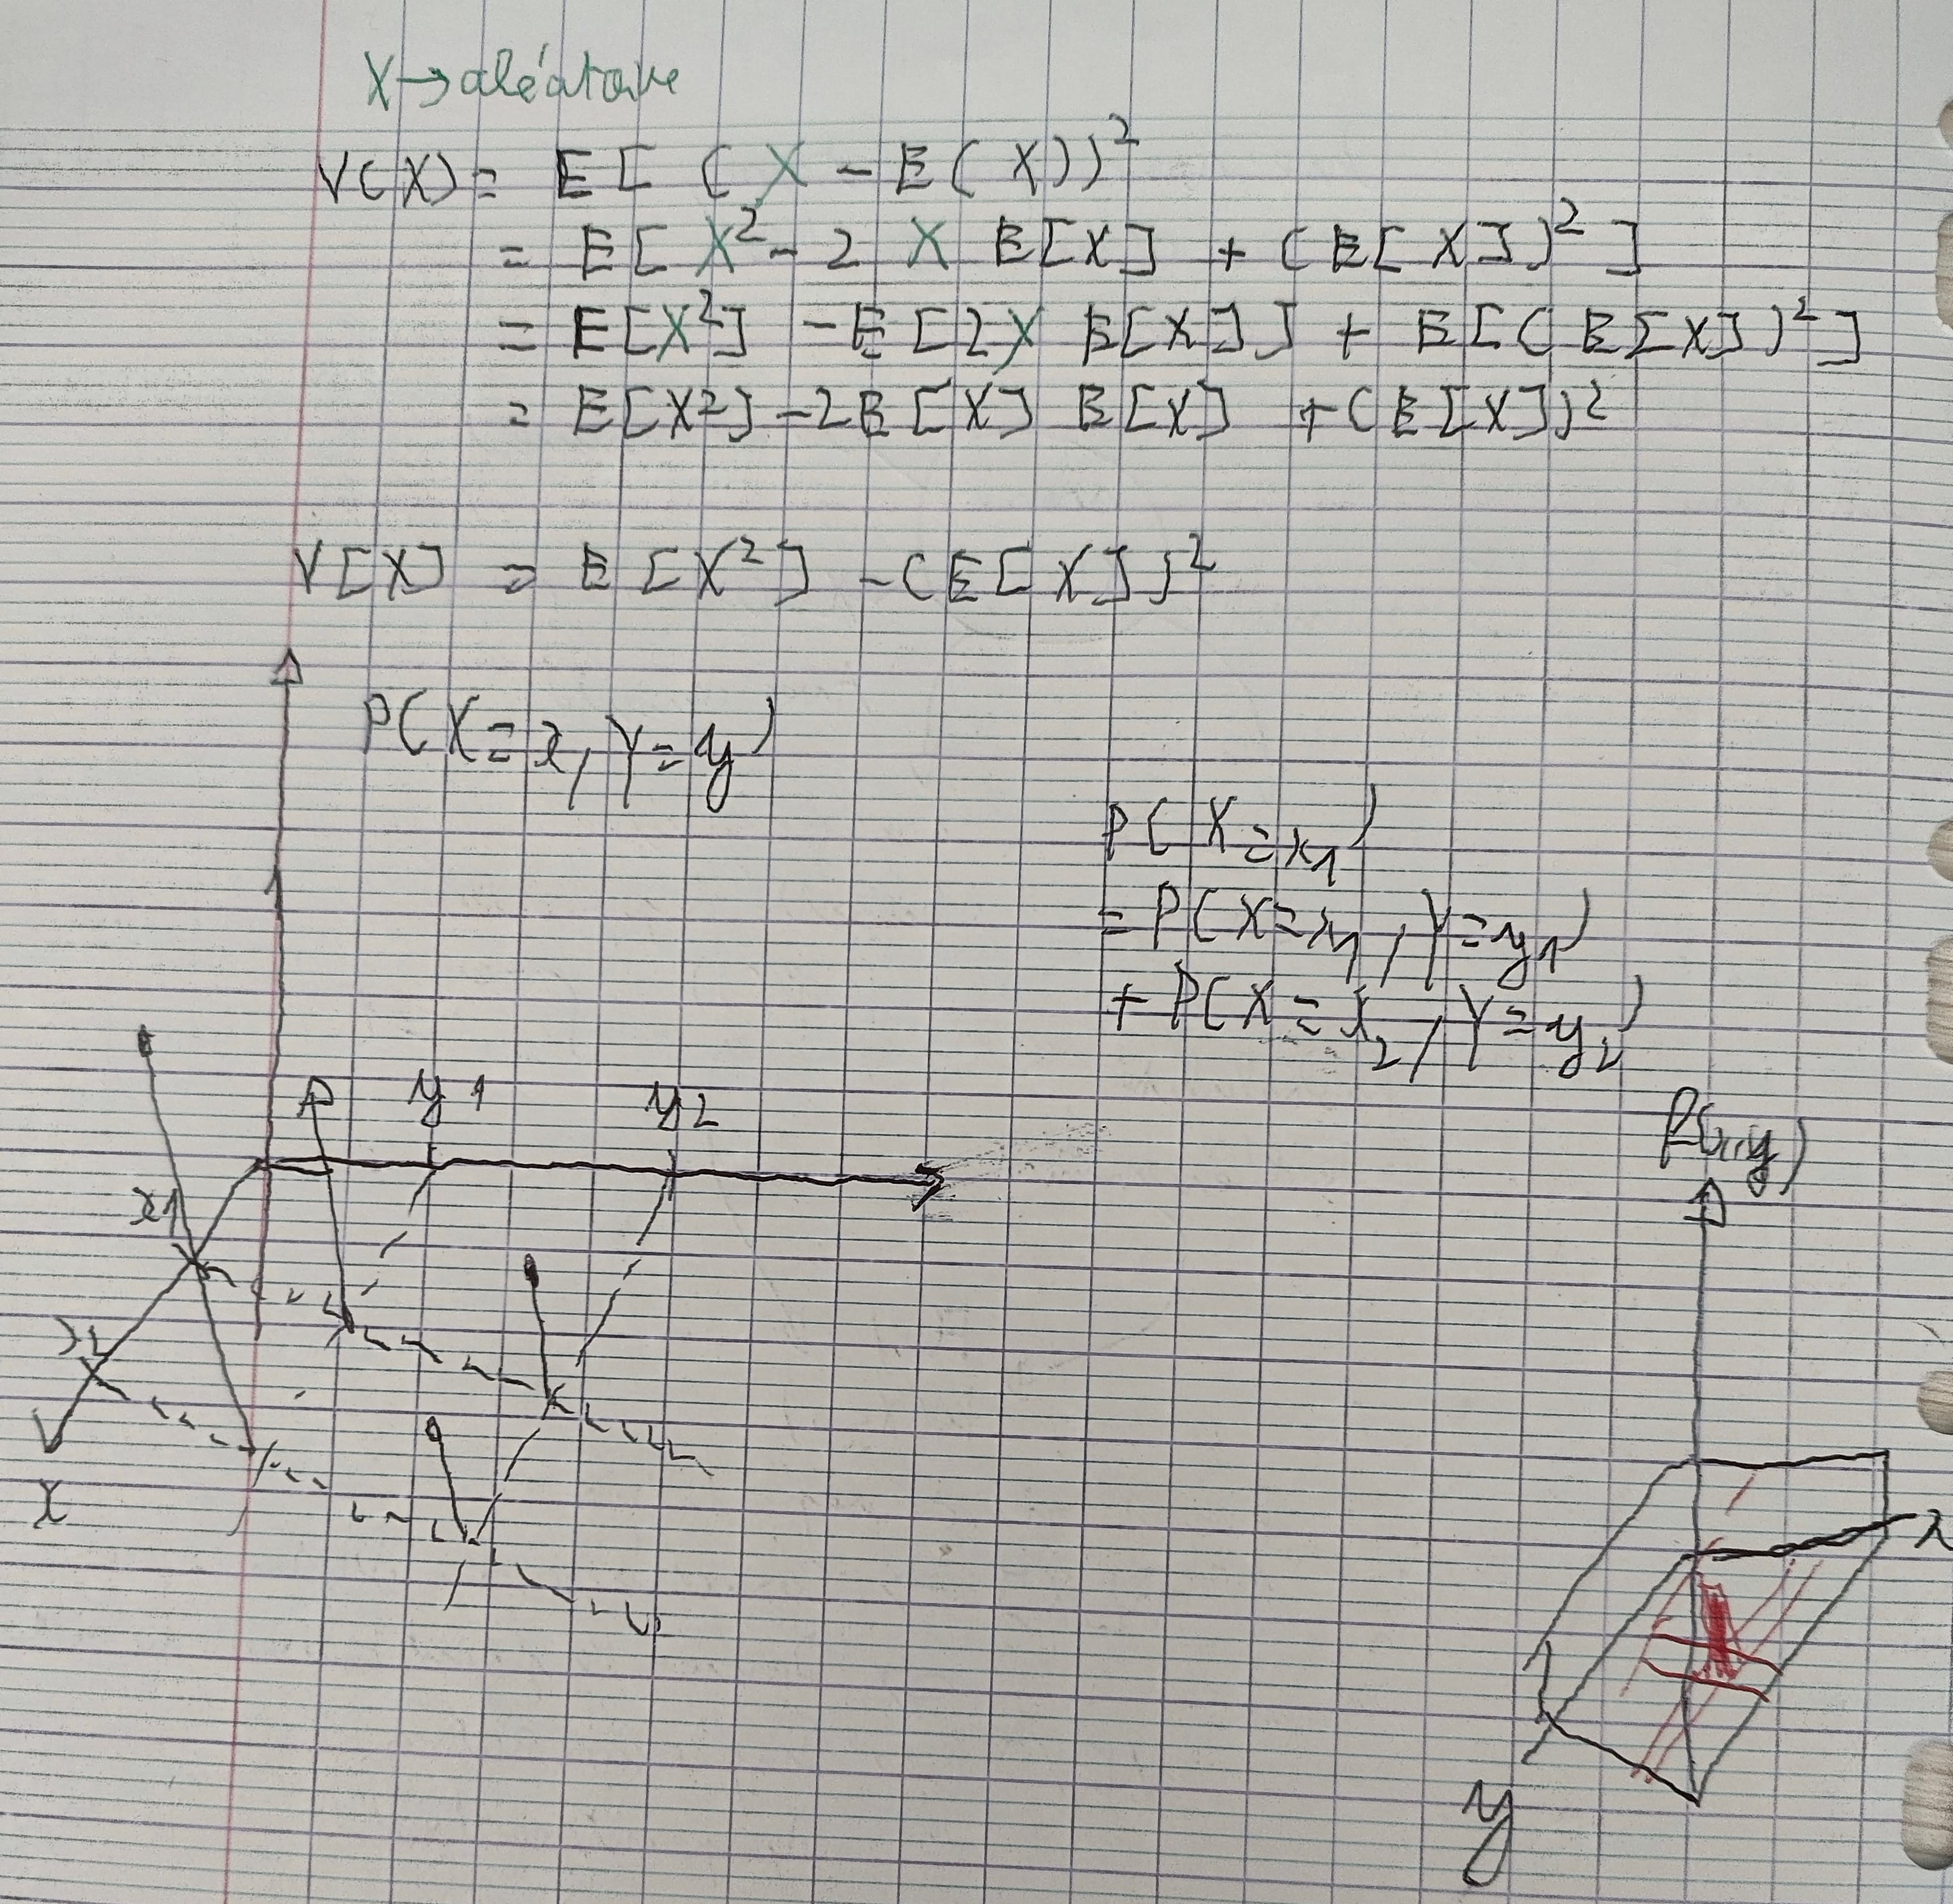 X → aléatoire
V(X) = E[ ( X - E( X))²
= E[ X² - 2 X E[X] + (E[X])² ]
= E[X²] - E[2X E[X]] + E[(E[X])²]
= E[X²] - 2E[X] E[X] + (E[X])²
V[X] = E[X²] - (E[X])²
P(X=x, Y=y)
P(X=x1)
= P(X=x1, Y=y1)
+ P(X=x2, Y=y2)
1
y1 y2
x1
x2
X
x
y